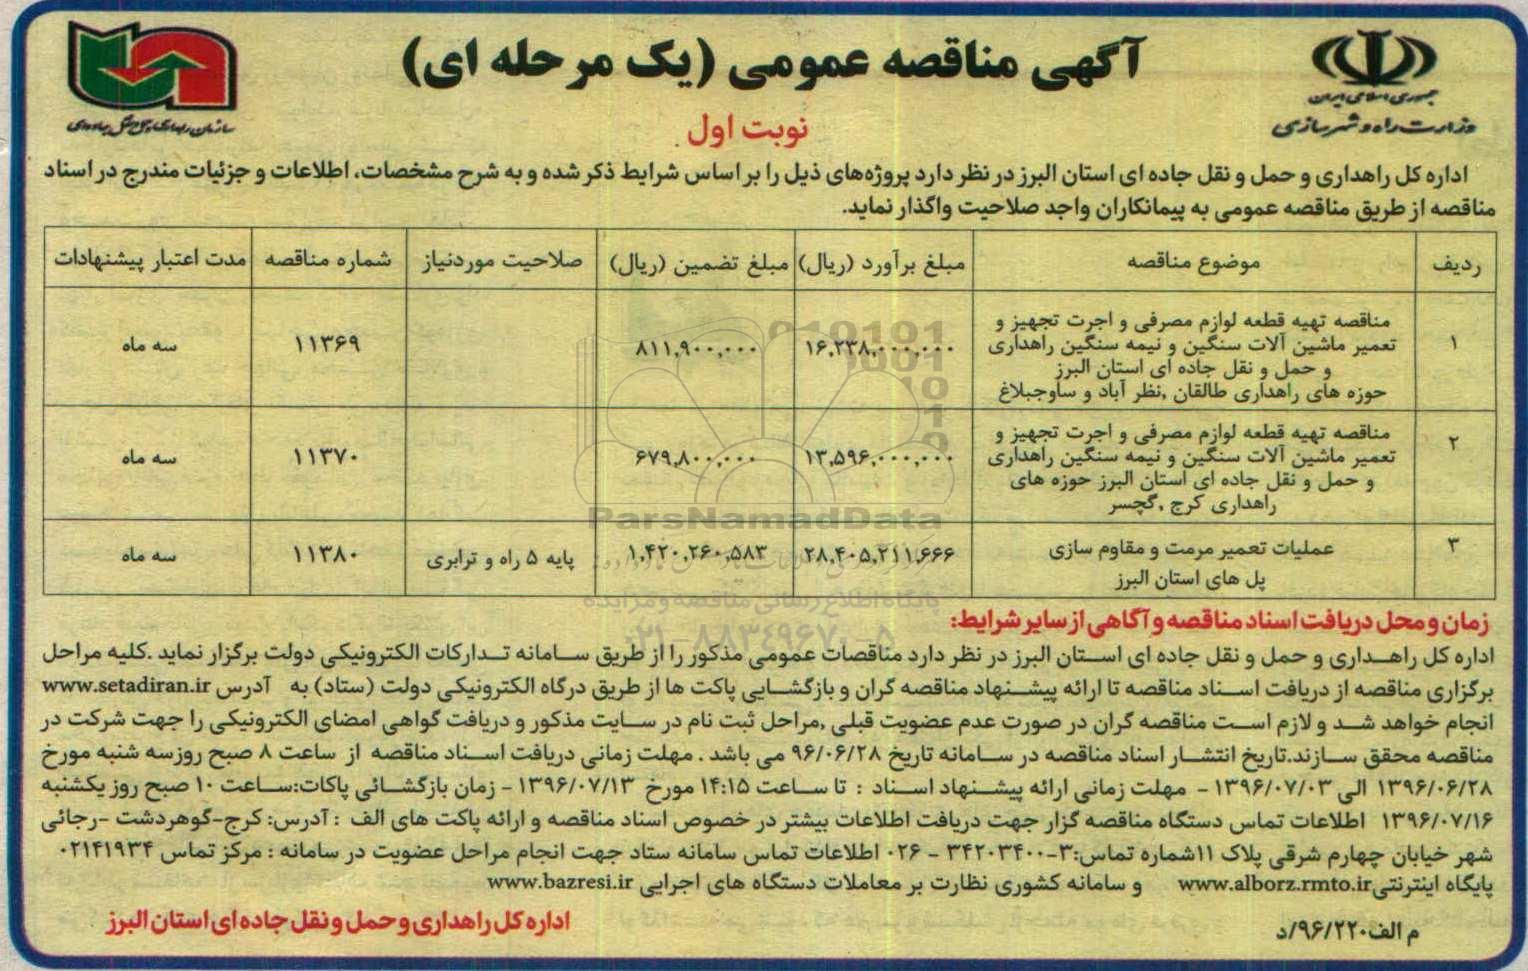 آگهی مناقصه عمومی (یک مرحله ای)
جمهوری اسلامی ایران
وزارت راه و شهرسازی
سازمان راهداری و حمل و نقل جاده‌ای
نوبت اول
اداره کل راهداری و حمل و نقل جاده ای استان البرز در نظر دارد پروژه‌های ذیل را بر اساس شرایط ذکر شده و به شرح مشخصات، اطلاعات و جزئیات مندرج در اسناد
مناقصه از طریق مناقصه عمومی به پیمانکاران واجد صلاحیت واگذار نماید.
ردیف موضوع مناقصه مبلغ برآورد (ریال) مبلغ تضمین (ریال) صلاحیت موردنیاز شماره مناقصه مدت اعتبار پیشنهادات
۱ مناقصه تهیه قطعه لوازم مصرفی و اجرت تجهیز و
تعمیر ماشین آلات سنگین و نیمه سنگین راهداری
و حمل و نقل جاده ای استان البرز
حوزه های راهداری طالقان ,نظر آباد و ساوجبلاغ
۱۶,۲۳۸,۰۰۰,۰۰۰ ۸۱۱,۹۰۰,۰۰۰ ۱۱۳۶۹ سه ماه
۲ مناقصه تهیه قطعه لوازم مصرفی و اجرت تجهیز و
تعمیر ماشین آلات سنگین و نیمه سنگین راهداری
و حمل و نقل جاده ای استان البرز حوزه های
راهداری کرج ,گچسر
۱۳,۵۹۶,۰۰۰,۰۰۰ ۶۷۹,۸۰۰,۰۰۰ ۱۱۳۷۰ سه ماه
۳ عملیات تعمیر مرمت و مقاوم سازی
پل های استان البرز
۲۸,۴۰۵,۲۱۱,۶۶۶ ۱,۴۲۰,۲۶۰,۵۸۳ پایه ۵ راه و ترابری ۱۱۳۸۰ سه ماه
ParsNamadData
پایگاه اطلاع رسانی مناقصه و مزایده
۰۲۱-۸۸۳۴۹۶۷۰-۵
زمان و محل دریافت اسناد مناقصه و آگاهی از سایر شرایط:
اداره کل راهداری و حمل و نقل جاده ای استان البرز در نظر دارد مناقصات عمومی مذکور را از طریق سامانه تدارکات الکترونیکی دولت برگزار نماید .کلیه مراحل
برگزاری مناقصه از دریافت اسناد مناقصه تا ارائه پیشنهاد مناقصه گران و بازگشایی پاکت ها از طریق درگاه الکترونیکی دولت (ستاد) به آدرس www.setadiran.ir
انجام خواهد شد و لازم است مناقصه گران در صورت عدم عضویت قبلی ,مراحل ثبت نام در سایت مذکور و دریافت گواهی امضای الکترونیکی را جهت شرکت در
مناقصه محقق سازند.تاریخ انتشار اسناد مناقصه در سامانه تاریخ ۹۶/۰۶/۲۸ می باشد . مهلت زمانی دریافت اسناد مناقصه از ساعت ۸ صبح روزسه شنبه مورخ
۱۳۹۶/۰۶/۲۸ الی ۱۳۹۶/۰۷/۰۳ - مهلت زمانی ارائه پیشنهاد اسناد : تا ساعت ۱۴:۱۵ مورخ ۱۳۹۶/۰۷/۱۳ - زمان بازگشائی پاکات:ساعت ۱۰ صبح روز یکشنبه
۱۳۹۶/۰۷/۱۶ اطلاعات تماس دستگاه مناقصه گزار جهت دریافت اطلاعات بیشتر در خصوص اسناد مناقصه و ارائه پاکت های الف : آدرس: کرج-گوهردشت -رجائی
شهر خیابان چهارم شرقی پلاک ۱۱شماره تماس:۳-۳۴۲۰۳۴۰۰ - ۰۲۶ اطلاعات تماس سامانه ستاد جهت انجام مراحل عضویت در سامانه : مرکز تماس ۰۲۱۴۱۹۳۴
پایگاه اینترنتیwww.alborz.rmto.ir و سامانه کشوری نظارت بر معاملات دستگاه های اجرایی www.bazresi.ir
اداره کل راهداری و حمل و نقل جاده ای استان البرز
م الف۹۶/۲۲۰/د